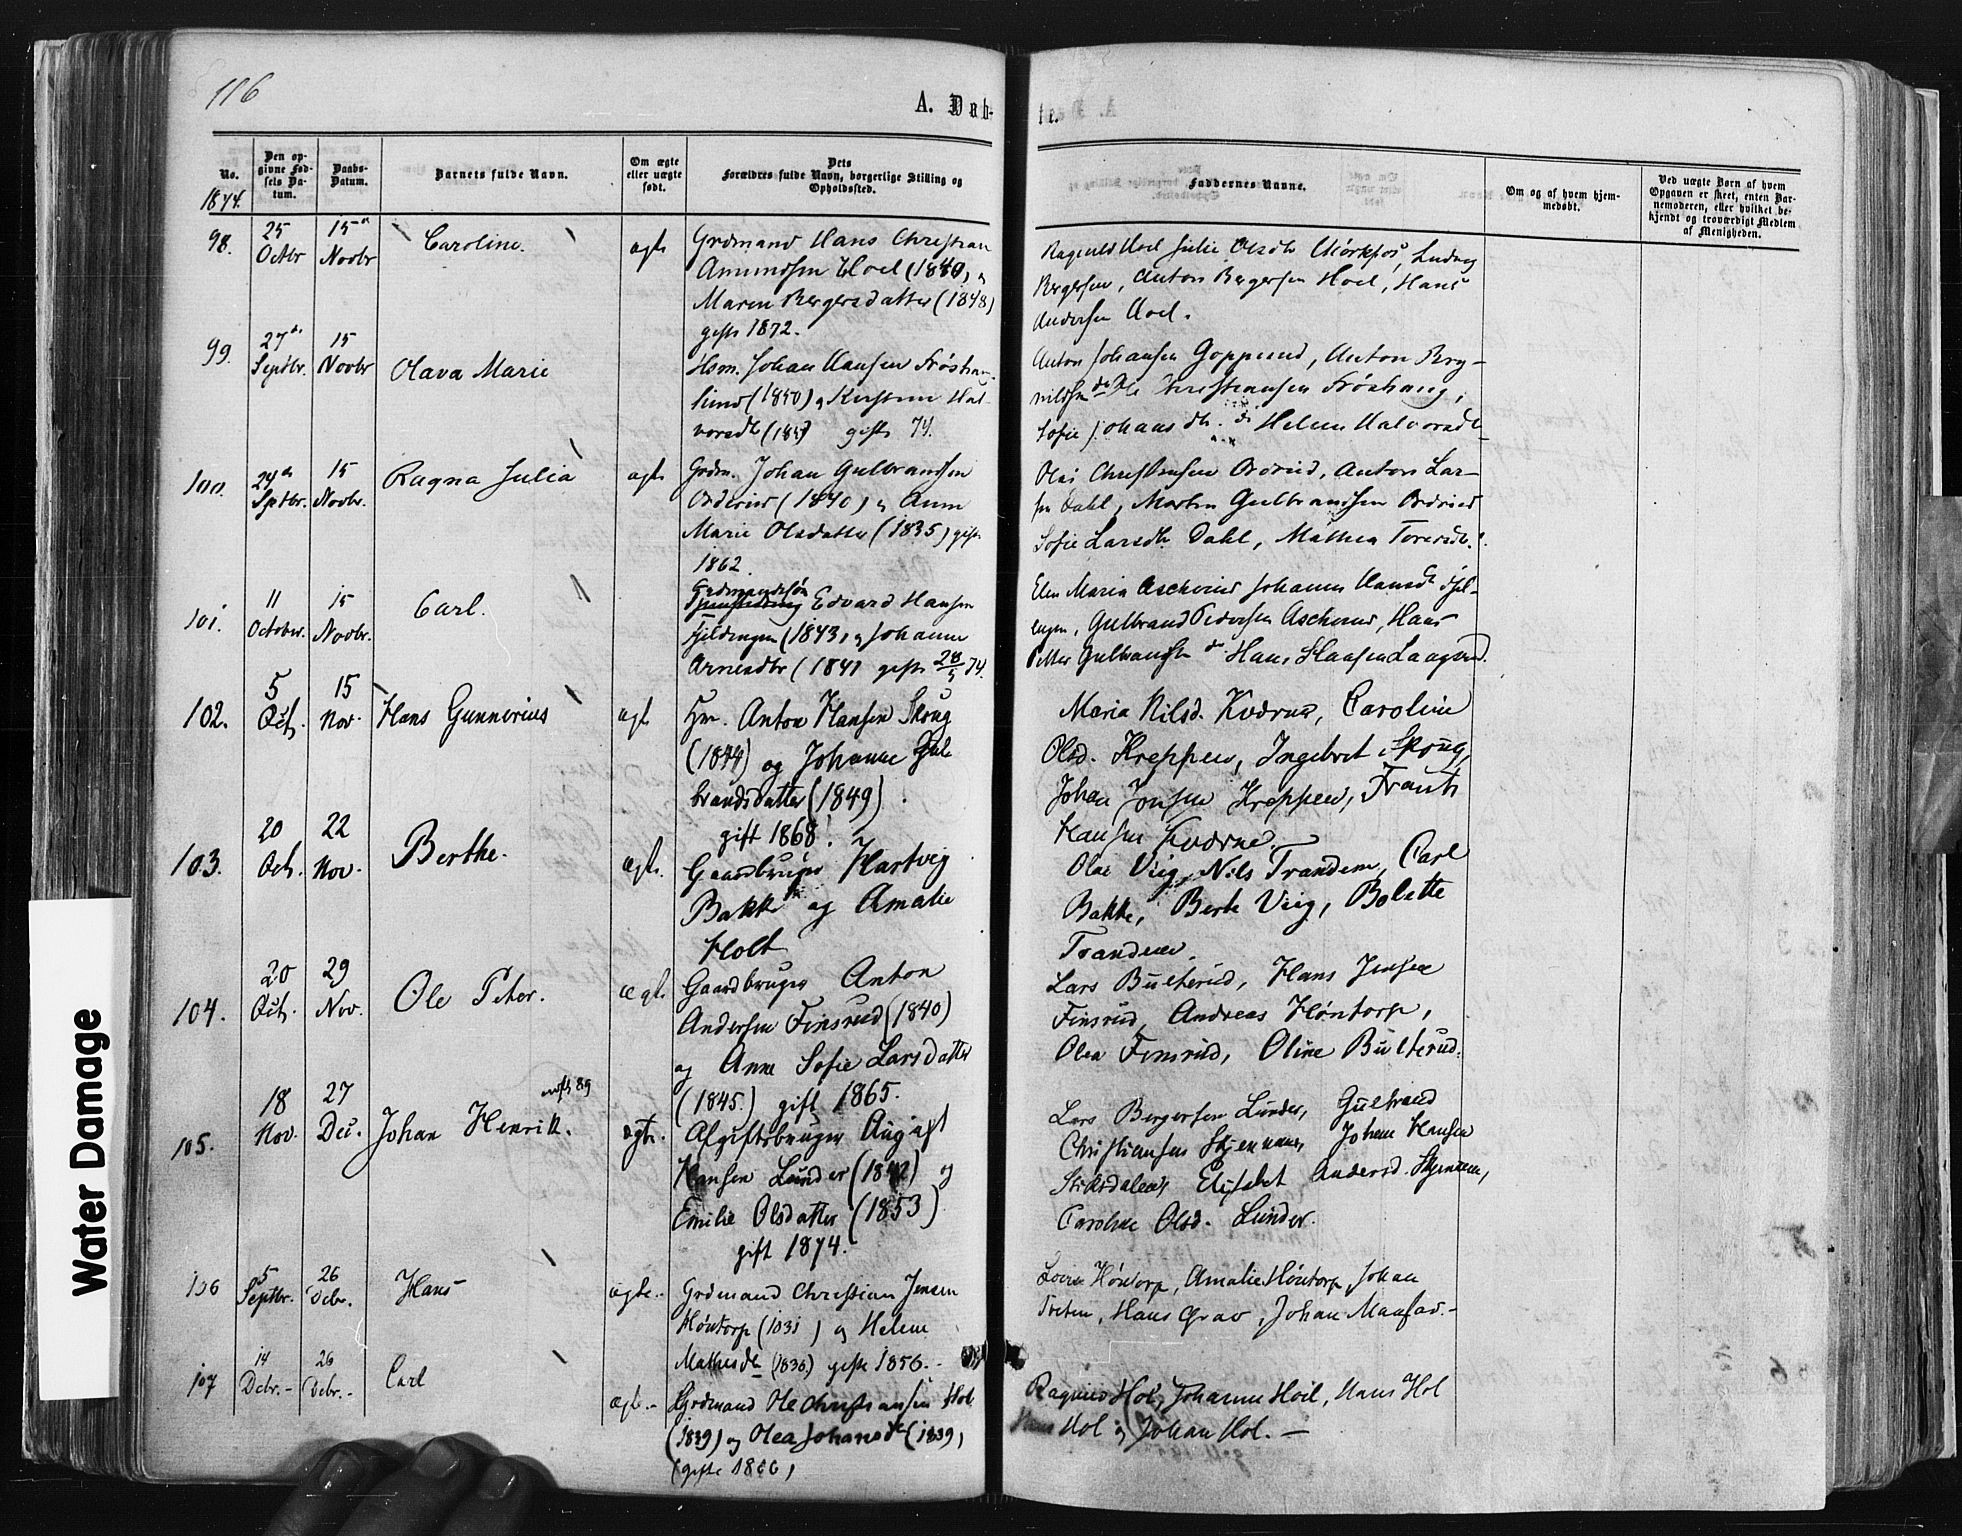 116
A. Døb-
te.
No.
Den op-
givne Fød-
sels Da-
tum.
Daabs-
Datum.
Barnets fulde Navn.
Om ægte
eller uægte
født.
Dets
Forældres fulde Navn, borgerlige Stilling og
Opholdssted.
Faddernes Navne.
Om og af hvem hjem-
medøbt.
Ved uægte Børn af hvem
Opgaven er skeet, enten Bar-
nemoderen, eller hvilket be-
kjendt og troværdigt Medlem
af Menigheden.
1874.
98.
25
Octbr
15
Novbr
Caroline.
ægte
Grdmand Hans Christian
Amundsen Hoel (1840) og
Maren Bergersdatter (1848)
gifte 1872.
Julie Olsdtr Mørkfos, Ludvig
Bergersen, Anton Bergersen Hoel, Hans
Andersen Hoel.
99.
27de
Septbr.
15
Novbr
Olava Marie
Hsm. Johan Hansen Frøshaug-
(1850) og Kirstine Hal-
vorsdtr gifte 74.
Anton Johansen Goppund, Anton
Ole Christiansen Frøshaug,
Sofie Johansdtr. do Helene Halvorsdtr
100.
24de
Sptbr.
15
Novbr.
Ragna Julia
ægte
Grdm. Johan Gulbrandsen
Orderud (1840) og Anne
Marie Olsdatter (1835) gifte
1862.
Christensen Ordrud, Anton Lar-
sen Dahl, Morten Gulbrandsen Ordrud
Sofie Larsdtr. Dahl, Mathea Toresdtr.
101.
11
October.
15
Novbr.
Carl.
Grdmandssøn
Edvard Hansen
Fjeldengen (1843) og Johanne
Arnesdtr (1841 gifte 28/5 74.
Elen Maria Ascherud Johanne Hansdtr Fjel-
engen, Gulbrand Pedersen Ascherud, Hans
Petter Gulbrandsen do Hans Hansen Laagerud.
102.
5
Oct.
15
Nov.
Hans Gunnerius
ægte
Hm. Anton Hansen Skoug
(1844) og Johanne Gul-
brandsdatter (1849).
gift 1868.
Maria Nilsd. Kværner, Caroline
Olsd. Kreppen, Ingebret Skoug,
Johan Jonsen Kreppen, Frants
Hansen Kværner.
103.
20
Oct.
22
Nov.
Berthe.
ægte.
Gaardbruger Hartvig
Bakke og Amalie
Holt
Olae Viig, Nils Trandem, Carl
Bakke, Berte Viig, Bolette
Trandem.
104.
20
Oct.
29
Nov.
Ole Peter.
ægte
Gaardbruger Anton
Andersen Finsrud (1840)
og Anne Sofie Larsdatter
(1845.) gift 1865.
Lars Bulterud, Hans Jensen
Finsrud, Andreas Høntorp,
Olea Finsrud, Oline Bulterud.
105.
18
Nov.
27
Dec.
Johan Henrik.
89
ægte.
Afgiftsbruger August
Hansen Lunder (1842) og
Emilie Olsdatter (1853)
gift 1874.
Lars Bergersen Lunder, Gulbrand
Christiansen Skjennum, Johan Hansen
Stiksdalen, Elisabet Andersd. Skjennum,
Caroline Olsd. Lunder.
106
5
Septbr.
26
Debr.
Hans
ægte.
Grdmand Christian Jensen
Høntorp (1831) og Helene
Mathisdtr (1836) gifte 1856. -
Høntorp, Amalie Høntorp, Johan
Hans Grav, Johan
107
14
Debr. -
26
Debr. -
Carl
ægte. -
Grdmand Ole Christiansen Hol
(1839) og Olea Johansdtr (1839)
(gifte 1866)
Hol, Johanne Hoel, Hans Hol
Hans Hol og Johan Hol. -
Water Damage